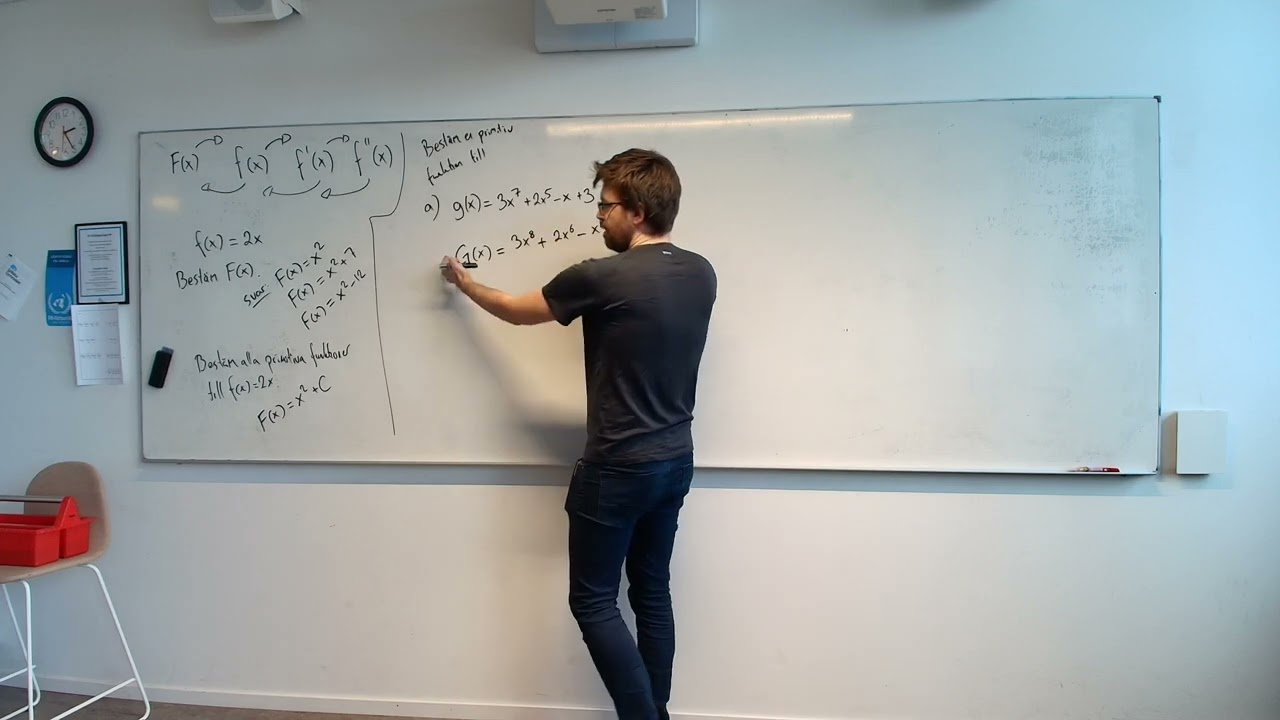 F(x) f(x) f'(x) f''(x)
f(x) = 2x
Bestäm F(x).
svar
F(x) = x²
F(x) = x² + 7
F(x) = x² - 12
Bestäm alla primitiva funktioner
till f(x) = 2x.
F(x) = x² + C
Bestäm en primitiv
funktion till
a) g(x) = 3x⁷ + 2x⁵ - x + 3
G(x) = 3x⁸ + 2x⁶ - x